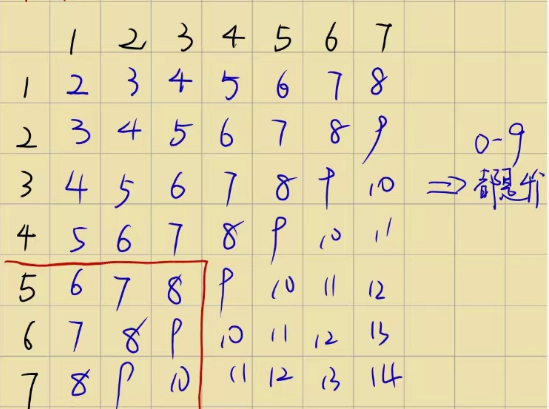 1 2 3 4 5 6 7
1 2 3 4 5 6 7 8
2 3 4 5 6 7 8 9
0-9
3 4 5 6 7 8 9 10
⇒ 都是
4 5 6 7 8 9 10 11
5 6 7 8 9 10 11 12
6 7 8 9 10 11 12 13
7 8 9 10 11 12 13 14